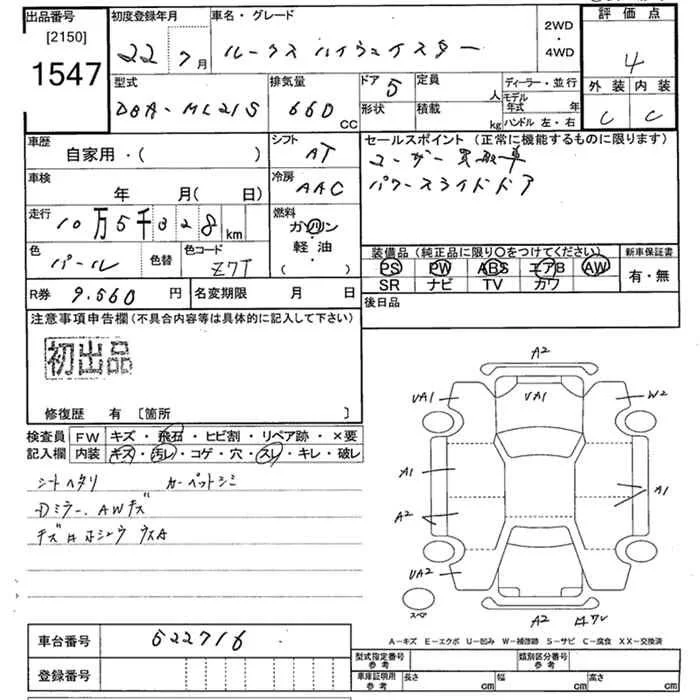 出品番号 [2150] 1547
初度登録年月 22 7月
車名・グレード ルークス ハイウェイスター
2WD・4WD
評価点 4
外装 内装
C C
型式 DBA-ML21S
排気量 660 CC
ドア 5
形状
定員 人
積載 kg
ディーラー・並行
モデル年式 年
ハンドル 左・右
車歴 自家用・( )
シフト AT
セールスポイント (正常に機能するものに限ります)
ユーザー買取車
パワースライドドア
車検 年 月(日)
冷房 AAC
走行 10万5千328km
燃料 ガソリン・軽油・( )
色 パール
色替
色コード Z7T
装備品 (純正品に限り○をつけてください)
PS PW ABS エアB AW
SR ナビ TV カワ
新車保証書 有・無
R券 9.560円
名変期限 月 日
後日品
注意事項申告欄 (不具合内容等は具体的に記入して下さい)
初出品
修復歴 有 [箇所 ]
検査員記入欄
FW キズ・飛石・ヒビ割・リペア跡・×要
内装 キズ・汚レ・コゲ・穴・スレ・キレ・破レ
シートヘタリ カーペットシミ
Dミラー、AWキズ
キズ
A2
UA1 UA1 W2
A1 A1
A2
UA2
スペア
A2
A-キズ E-エクボ U-凹み W-補修跡 S-サビ C-腐食 XX-交換済
車台番号 522716
登録番号
型式指定番号 参考
類別区分番号 参考
車庫証明用 参考 長さ cm 幅 cm 高さ cm